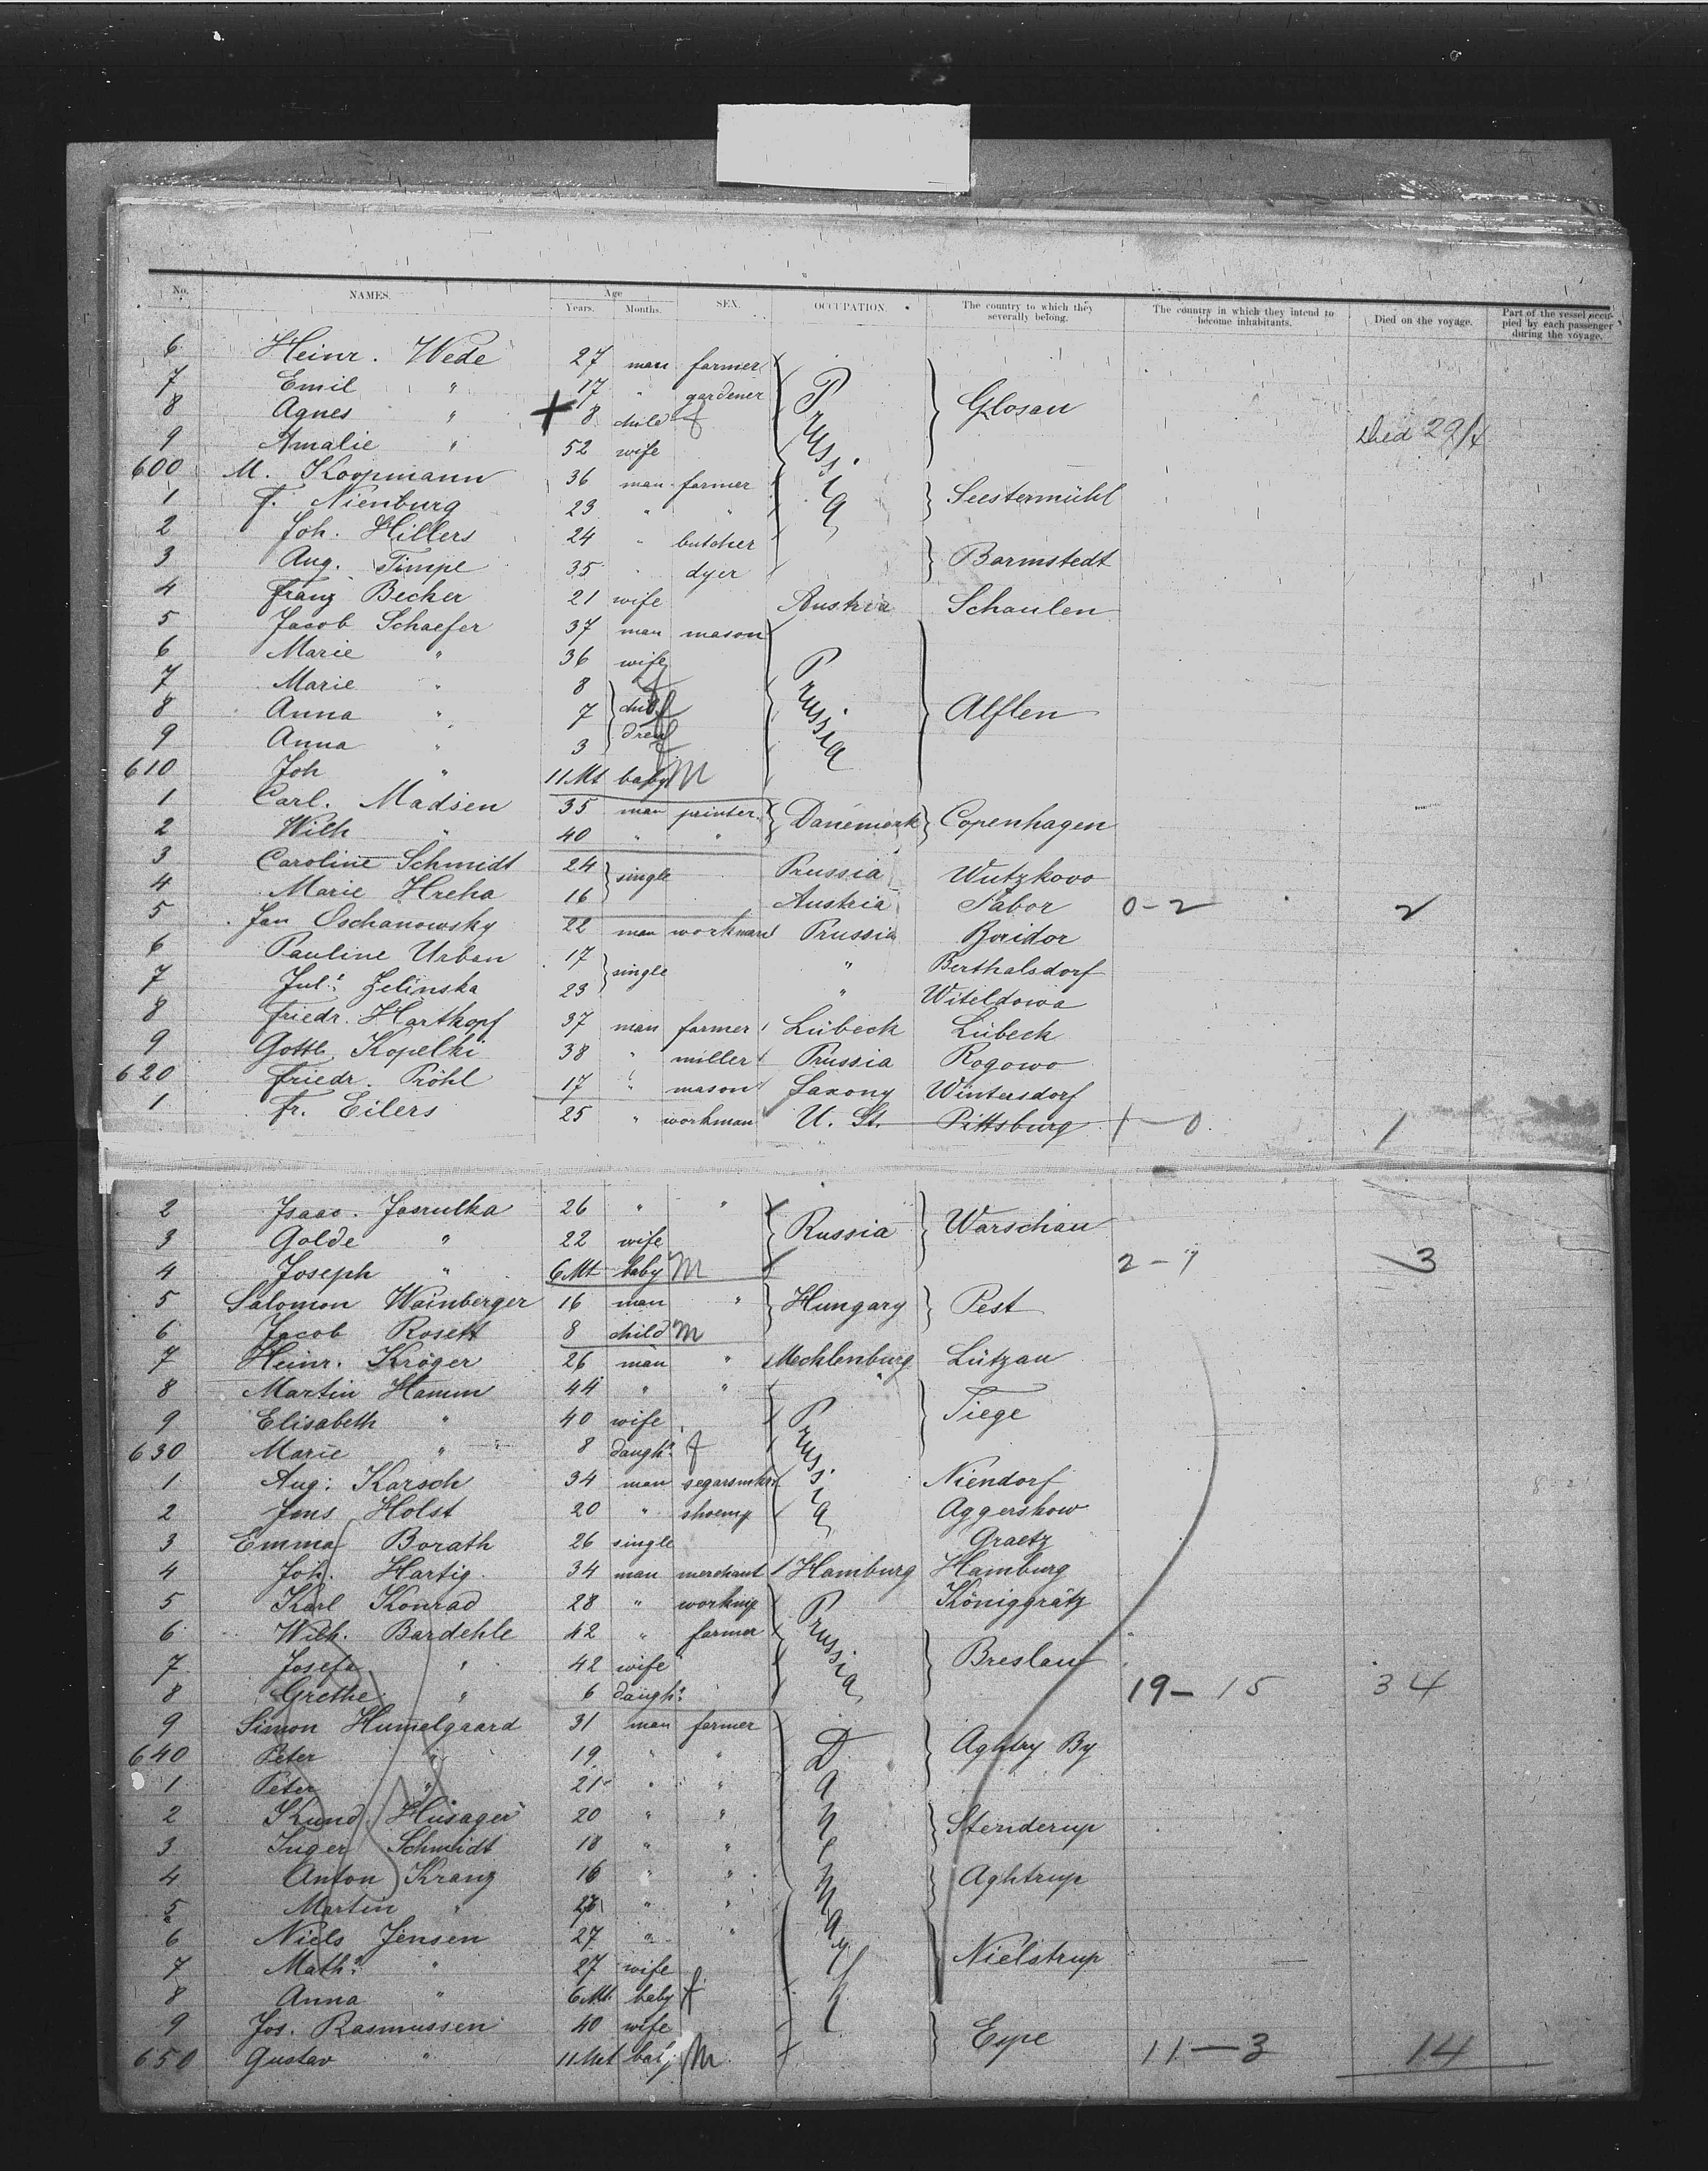 No. NAMES. Age Years. Months. SEX. OCCUPATION. The country to which they severally belong. The country in which they intend to become inhabitants. Died on the voyage. Part of the vessel occupied by each passenger during the voyage.
6 Heinr. Wede 27 man farmer Prussia Glosau
7 Emil " 17 " gardener
8 Agnes " + 8 child f Died 29/4
9 Amalie " 52 wife
600 M. Koopmann 36 man farmer Seestermühl
1 F. Nienburg 23 " "
2 Joh. Hillers 24 " butcher Barmstedt
3 Aug. Timpe 35 " dyer
4 Franz Becher 21 wife Austria Schaulen
5 Jacob Schaefer 37 man mason Prussia Alflen
6 Marie " 36 wife
7 Marie " 8 children f
8 Anna " 7 f
9 Anna " 3 f
610 Joh " 11 Mt baby M
1 Carl. Madsen 35 man painter Danemark Copenhagen
2 Wilh " 40 " "
3 Caroline Schmidt 24 single Prussia Wutzkow
4 Marie Hreha 16 Austria Tabor 0-2 2
5 Jan Oschanowsky 22 man workman Prussia
6 Pauline Urban 17 single " Berthalsdorf
7 Jul. Zelinska 23 " Witeldowa
8 Friedr. Hartkopf 37 man farmer Lübeck Lübeck
9 Gottl. Kopelki 38 " miller Prussia Rogowo
620 Friedr. Pröhl 17 " mason Saxony Wintersdorf
1 Fr. Eilers 25 " workman U. St. Pittsburg 1-0 1
2 Isaac. 26 " " Russia Warschau
3 Golde " 22 wife
4 Joseph " 6 Mt baby M 2-1 3
5 Salomon Wainberger 16 man " Hungary Pest
6 Jacob Rosett 8 child M
7 Heinr. Kröger 26 man " Mecklenburg Lützau
8 Martin Hamm 44 " " Prussia Tiege
9 Elisabeth " 40 wife
630 Marie " 8 daughr f
1 Aug. Karsch 34 man segarsmkr Niendorf
2 Jens Holst 20 " shoemp Aggershow
3 Emma Borath 26 single Graetz
4 Joh. Hartig 34 man merchant Hamburg Hamburg
5 Karl Konrad 28 " workmp Prussia Königgrätz
6 Wilh. Bardehle 42 " farmer Breslau
7 Josefa " 42 wife
8 Grethe " 6 daughr 19-15 34
9 Simon Humelgaard 31 man farmer Danemark Aghtry By
640 Peter " 19 " "
1 Peter " 21 " "
2 Knud Husager 20 " " Stenderup
3 Inger Schmidt 18 " "
4 Anton Kranz 16 " " Aghtrup
5 Martin " " "
6 Niels Jensen 27 " " Nielstrup
7 Matha " 27 wife
8 Anna " 6 Mt. baby f
9 Jos. Rasmussen 40 wife Expe
650 Gustav " 11 Mt baby M 11-3 14